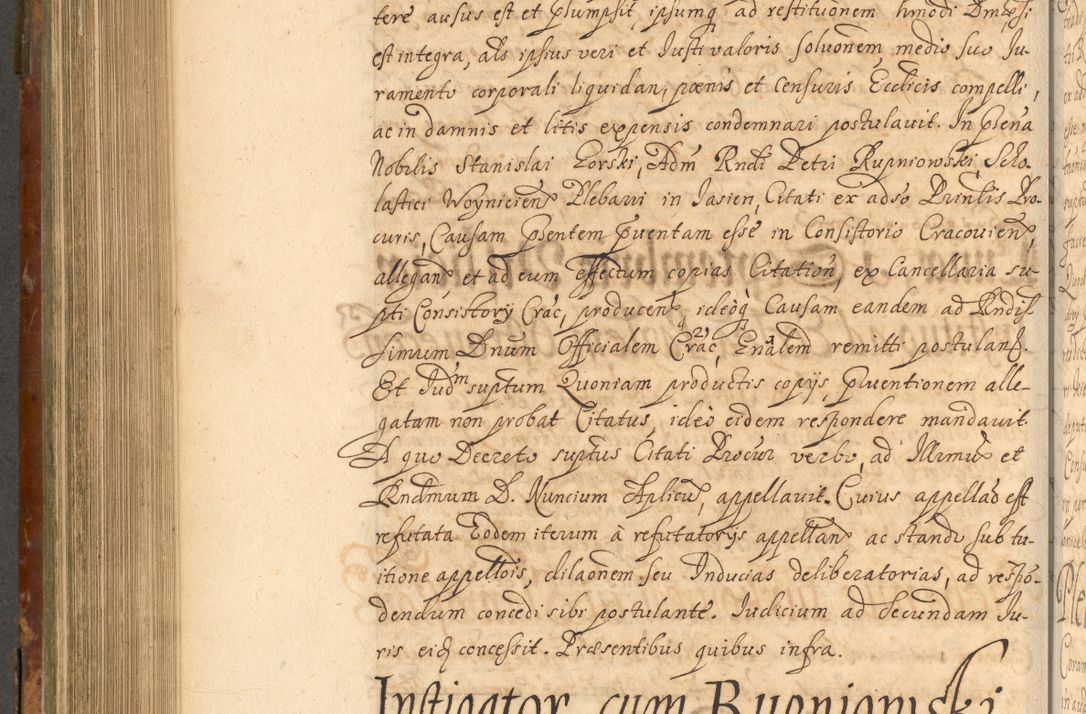 tere ausus est et p̃sumpsit, ipsumq ad restitutionem hmodi
est integra, als ipsius veri et Iusti valoris solvonem medio suo Iu-
ramento corporali liquidan, pœnis et Censuris Ecclicis compelli,
ac in damnis et litis expensis condemnari postulavit. In p̃sena
Nobilis Stanislai Gorski, Adm Rndi Petri Rupniowski, Scho-
lastici Woynicien Plebani in Iasien, Citati ex adso Prinlis Pro-
curis, Causam p̃sentem p̃ventam esse in Consistorio Cracovien,
allegan et ad eum effectum copias Citation, ex Cancellaria su-
pti Consistory Crac, producen, ideoq Causam eandem ad Rndis-
simum Dnum Officialem Crac, Gnalem remitti postulan.
Et Iud suptum Quoniam productis copijs, p̃ventionem alle-
gatam non probat Citatus, ideo eidem respondere mandavit
A quo Decreto suptus Citati Procur verbo, ad Illrmum et
Rndmum D. Nuncium Aplicu, appellavit. Cuius appellao est
refutata Eodem iterum à refutatorijs appellan ac stando sub tu-
itione appellois, dilaonem seu Inducias deliberatorias, ad respo-
dendum concedi sibi postulante. Iudicium ad secundam Iu-
ris eid concessit. Præsentibus quibus infra.
Instigator cum Rupniowski